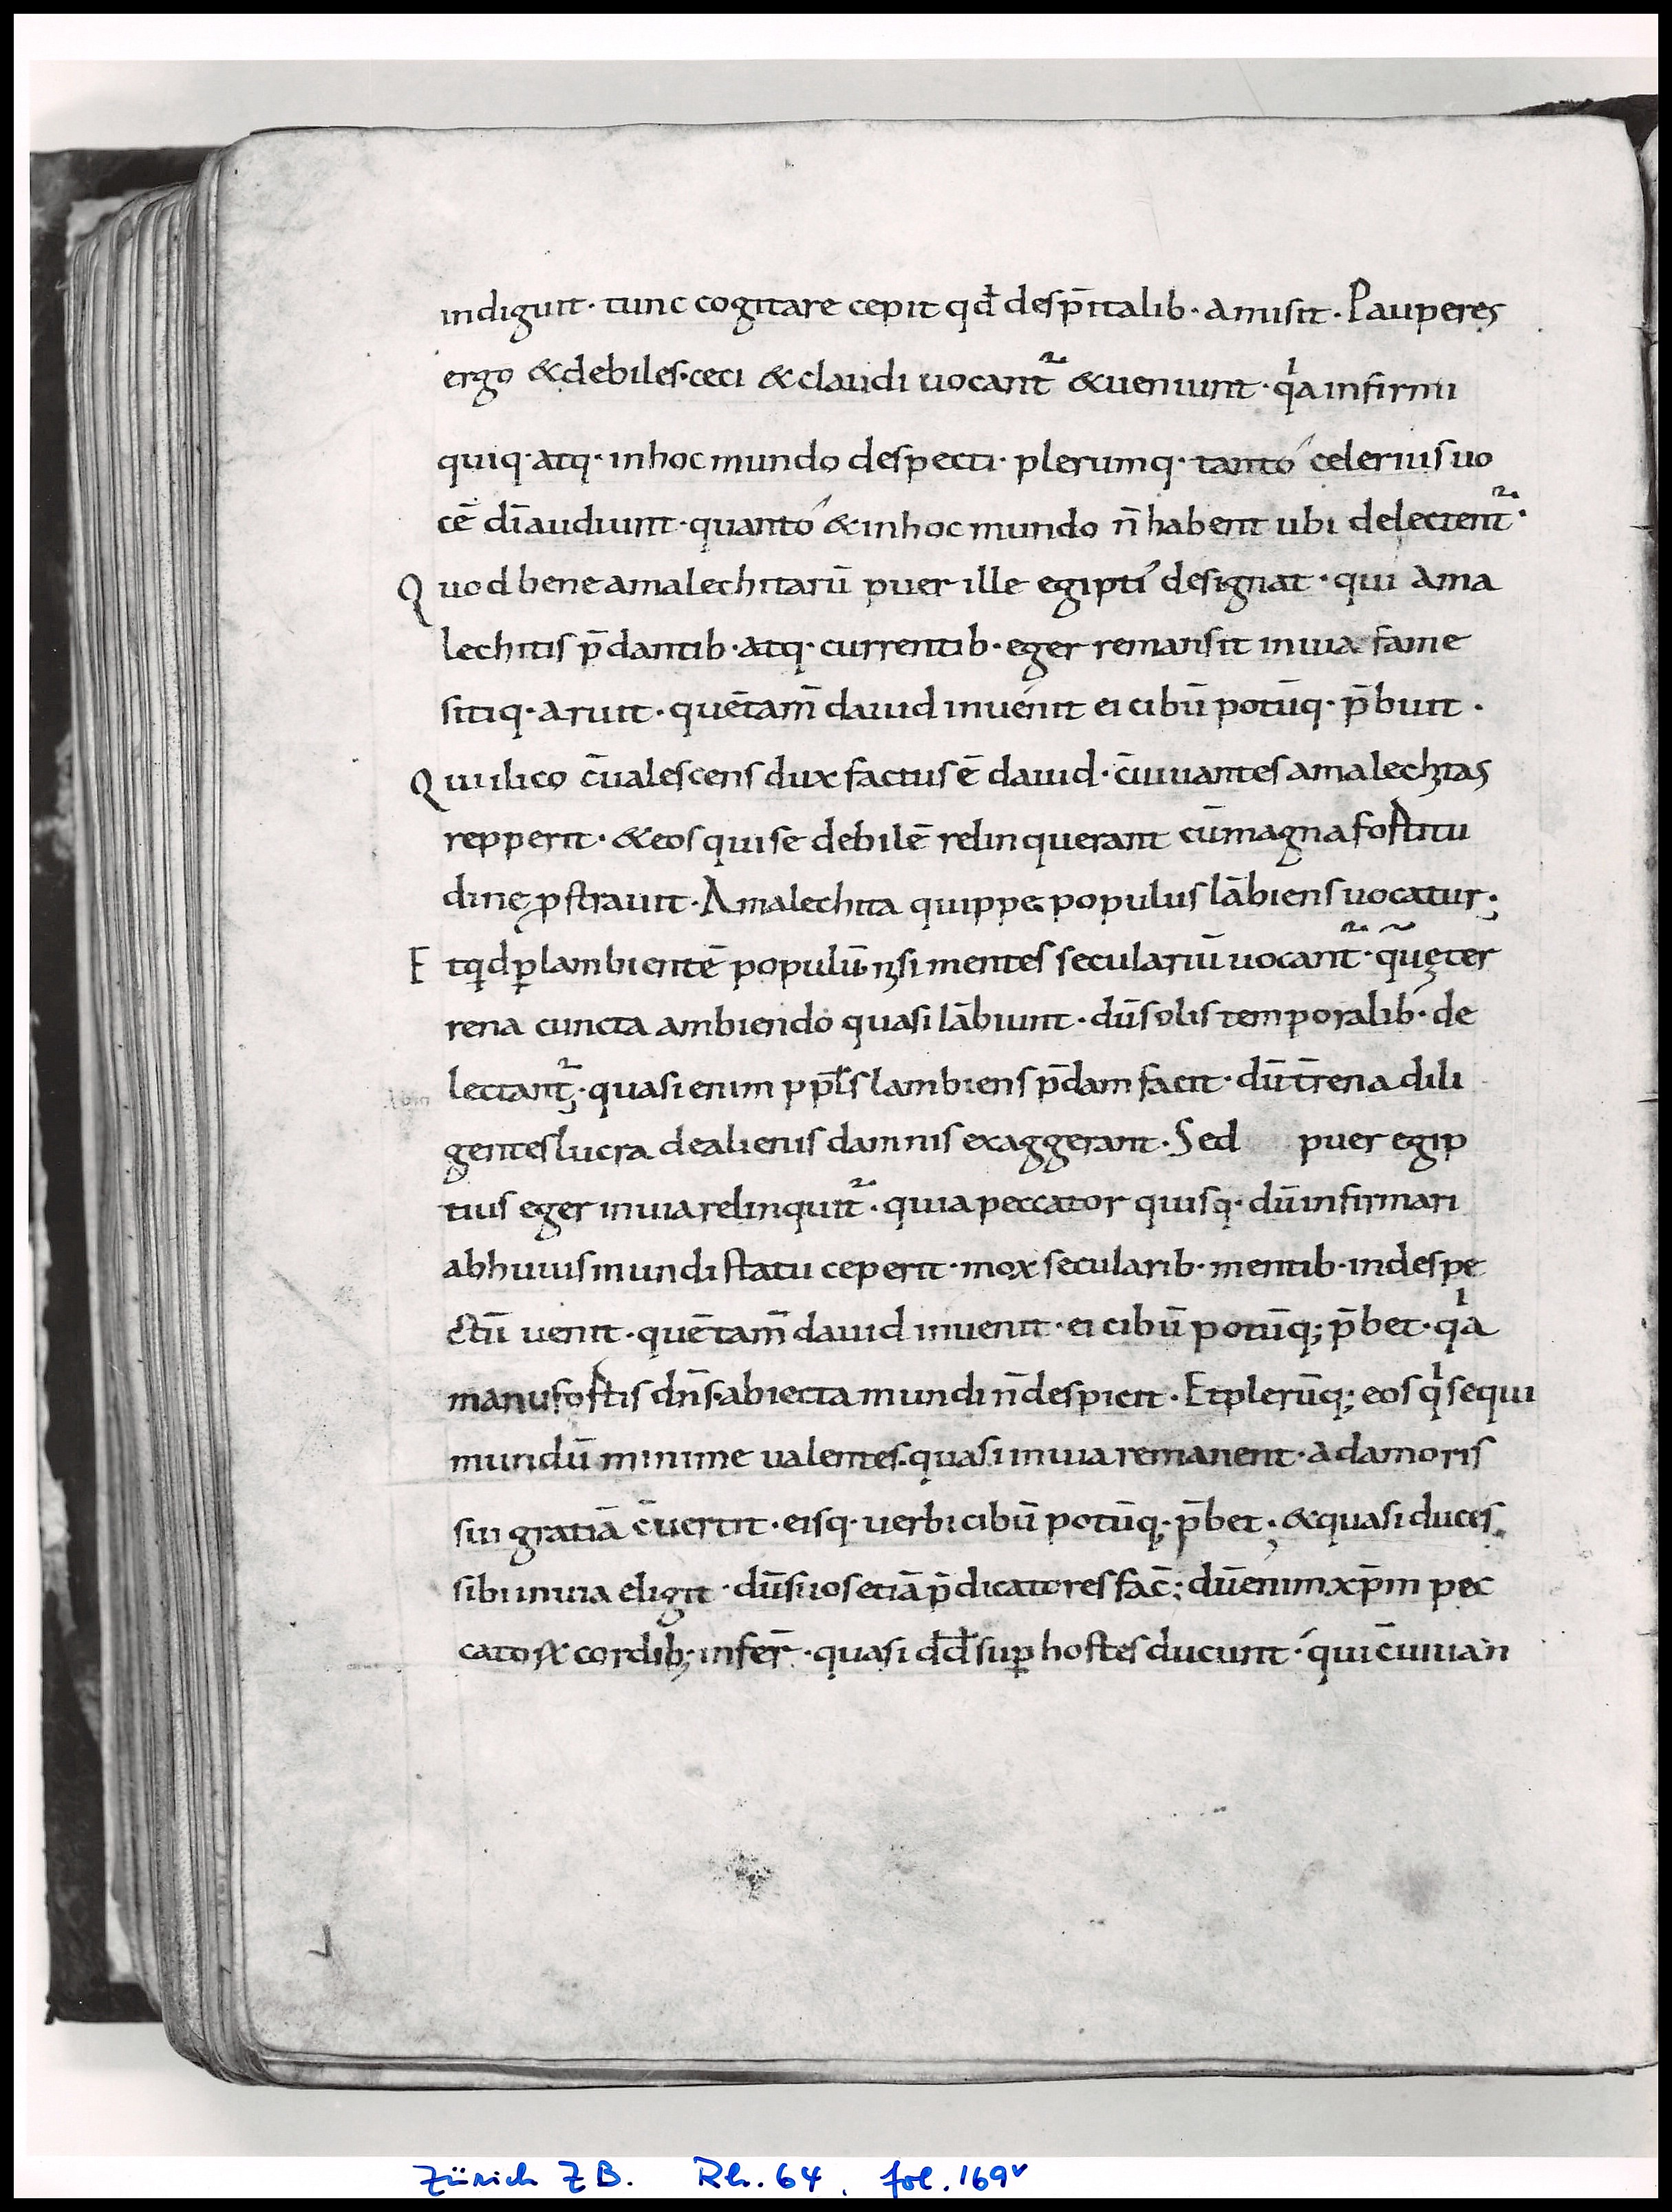 indiguit · tunc cogitare cepit qđ desp̄italib · amisit · Pauperes
ergo & debiles · ceci & claudi uocant̄ & ueniunt · qͥa infirmi
quiq · atq · in hoc mundo despecti · plerumq · tantó celerius uo
cē dī audiunt · quantó & in hoc mundo n̄ habent ubi delectent̄ ·
Quod bene amalechitarū puer ille egipti designat · qui ama
lechitis p̄dantib · atq · currentib · eger remansit in uia fame
sitiq · aruit · quē tam̄ dauid inuénit ei cibū potūq · p̄buit ·
Qui ilico c̄ualescens dux factus ē dauid · c̄uiuantes amalechitas
repperit · & eos qui se debilē relinquerant cū magna fortitu
dinę pstrauit · Amalechita quippe populus lābiens uocatur ;
Et qd ꝑ lambientē populū nisi mentes seculariū uocant̄ · quę ter
rena cuncta ambiendo quasi lābiunt · dū solis temporalib · de
lectant̄ ; quasi enim ppl̄s lambiens p̄dam facit · dū t̄rena dili
gentes lucra de alienis damnis exaggerant · Sed puer egip
tius eger in uia relinquit̄ · quia peccator quisq · dū infirmari
ab huius mundi statu ceperit · mox secularib · mentib · in despe
ctū uenit · quē tam̄ dauid inuenit · ei cibū potūq ; p̄bet · qͥa
manu fortis dn̄s · abiecta mundi n̄ despicit · Et plerūq ; eos qͥ sequi
mundū minime ualentes · quasi in uia remanent · ad amoris
sui gratiā c̄uertit · eisq · uerbi cibū potūq ; p̄bet ; & quasi duces
sibi in uia eligit · dū suos etiā p̄dicatores fac̄ ; dū enim xp̄m pec
catoꝝ cordib ; infer̄ · quasi dd̄ suꝑ hostes ducunt · qui c̄uiuan
Zürich ZB. Rh. 64, fol. 169ᵛ